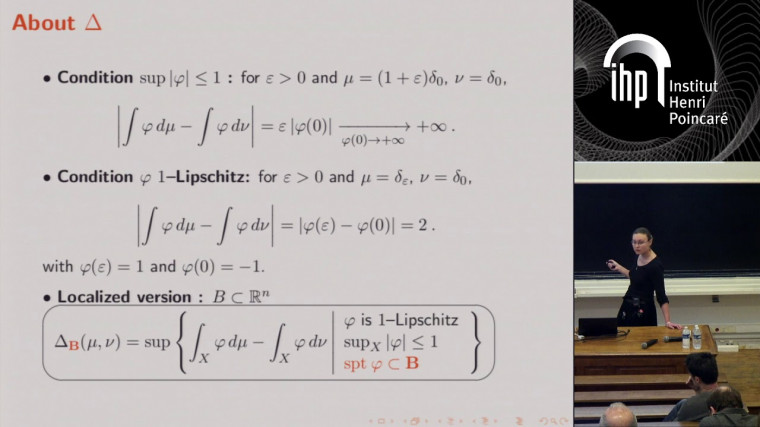 About Δ
• Condition sup |φ| ≤ 1 : for ε > 0 and μ = (1 + ε)δ₀, ν = δ₀,
|∫ φ dμ − ∫ φ dν| = ε |φ(0)| ⟶ +∞ .
φ(0)→+∞
• Condition φ 1–Lipschitz: for ε > 0 and μ = δ_ε, ν = δ₀,
|∫ φ dμ − ∫ φ dν| = |φ(ε) − φ(0)| = 2 .
with φ(ε) = 1 and φ(0) = −1.
• Localized version : B ⊂ ℝⁿ
φ is 1–Lipschitz
Δ_B(μ, ν) = sup { ∫_X φ dμ − ∫_X φ dν | sup_X |φ| ≤ 1 }
spt φ ⊂ B
ihp
Institut
Henri
Poincaré